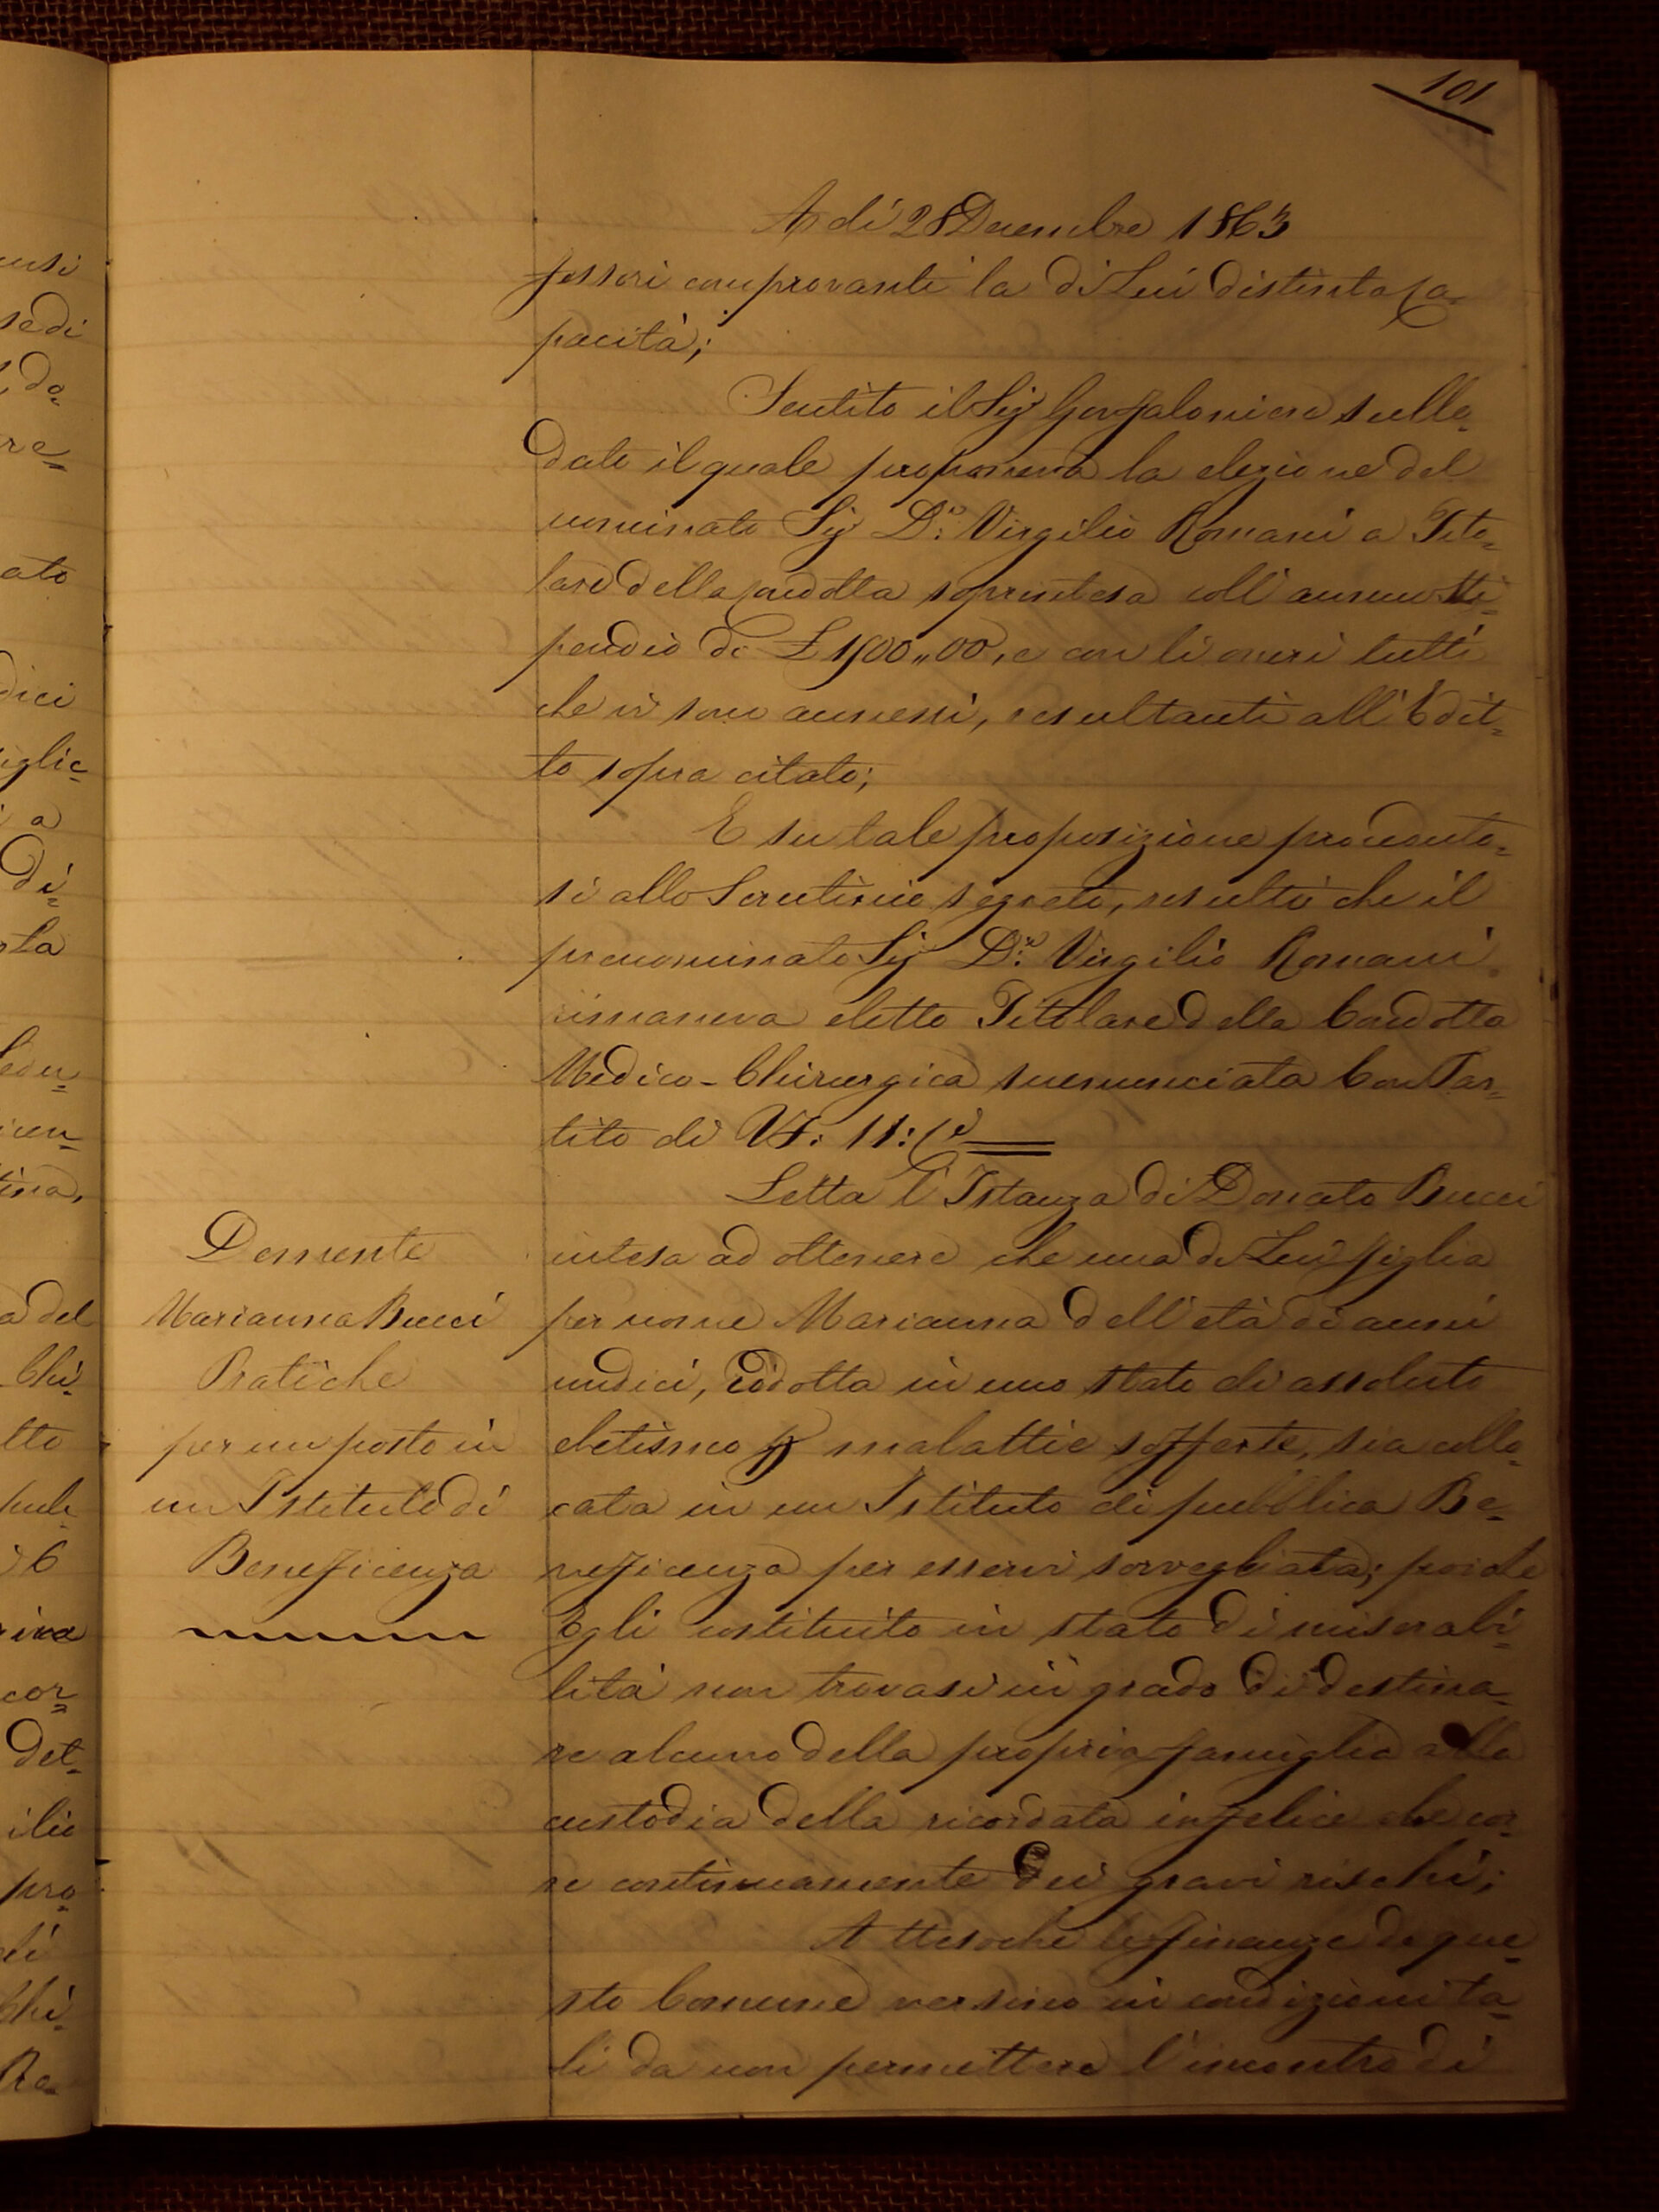 101
A dì 28 Decembre 1863
fessori comprovanti la di Lui distinta ca=
pacità;
Sentito il Sig.r Gonfaloniere sullo=
dato il quale proponeva la elezione del
nominato Sig.r D.r Virgilio Romani a Tito=
lare della condotta soprintesa coll'annuo sti=
pendio di £ 1900,,00, e con li oneri tutti
che vi sono annessi, resultanti all'Edit=
to sopra citato;
E su tale proposizione proceduto=
si allo Scrutinio segreto, resultò che il
prenominato Sig.r D.r Virgilio Romani
rimaneva eletto Titolare della Condotta
Medico-Chirurgica suenunciata Con Par=
tito di Vf: 11:
Letta l'Istanza di Donato Bucci
intesa ad ottenere che una di Lui figlia
per nome Marianna dell'età di anni
undici, ridotta in uno stato di assoluto
eletismo p malattie sofferte, sia collo=
cata in un Istituto di pubblica Be=
neficenza per esservi sorvegliata; poiche
Egli costituito in stato di miserabi=
lità non trovasi in grado di destina=
re alcuno della propria famiglia alla
custodia della ricordata infelice che cor=
re continuamente dei gravi rischi;
Attesochè le finanze di que=
sto Comune versino in condizioni ta=
li da non permettere l'incontro di
Demente
Marianna Bucci
Pratiche
per un posto in
un Istituto di
Beneficenza